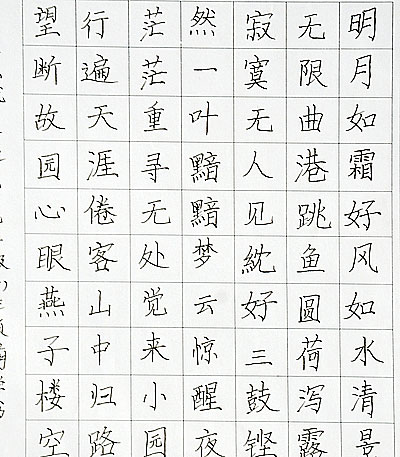 明月如霜好风如水清景
无限曲港跳鱼圆荷泻露
寂寞无人见紞好三鼓铿
然一叶黯黯梦云惊醒夜
茫茫重寻无处觉来小园
行遍天涯倦客山中归路
望断故园心眼燕子楼空